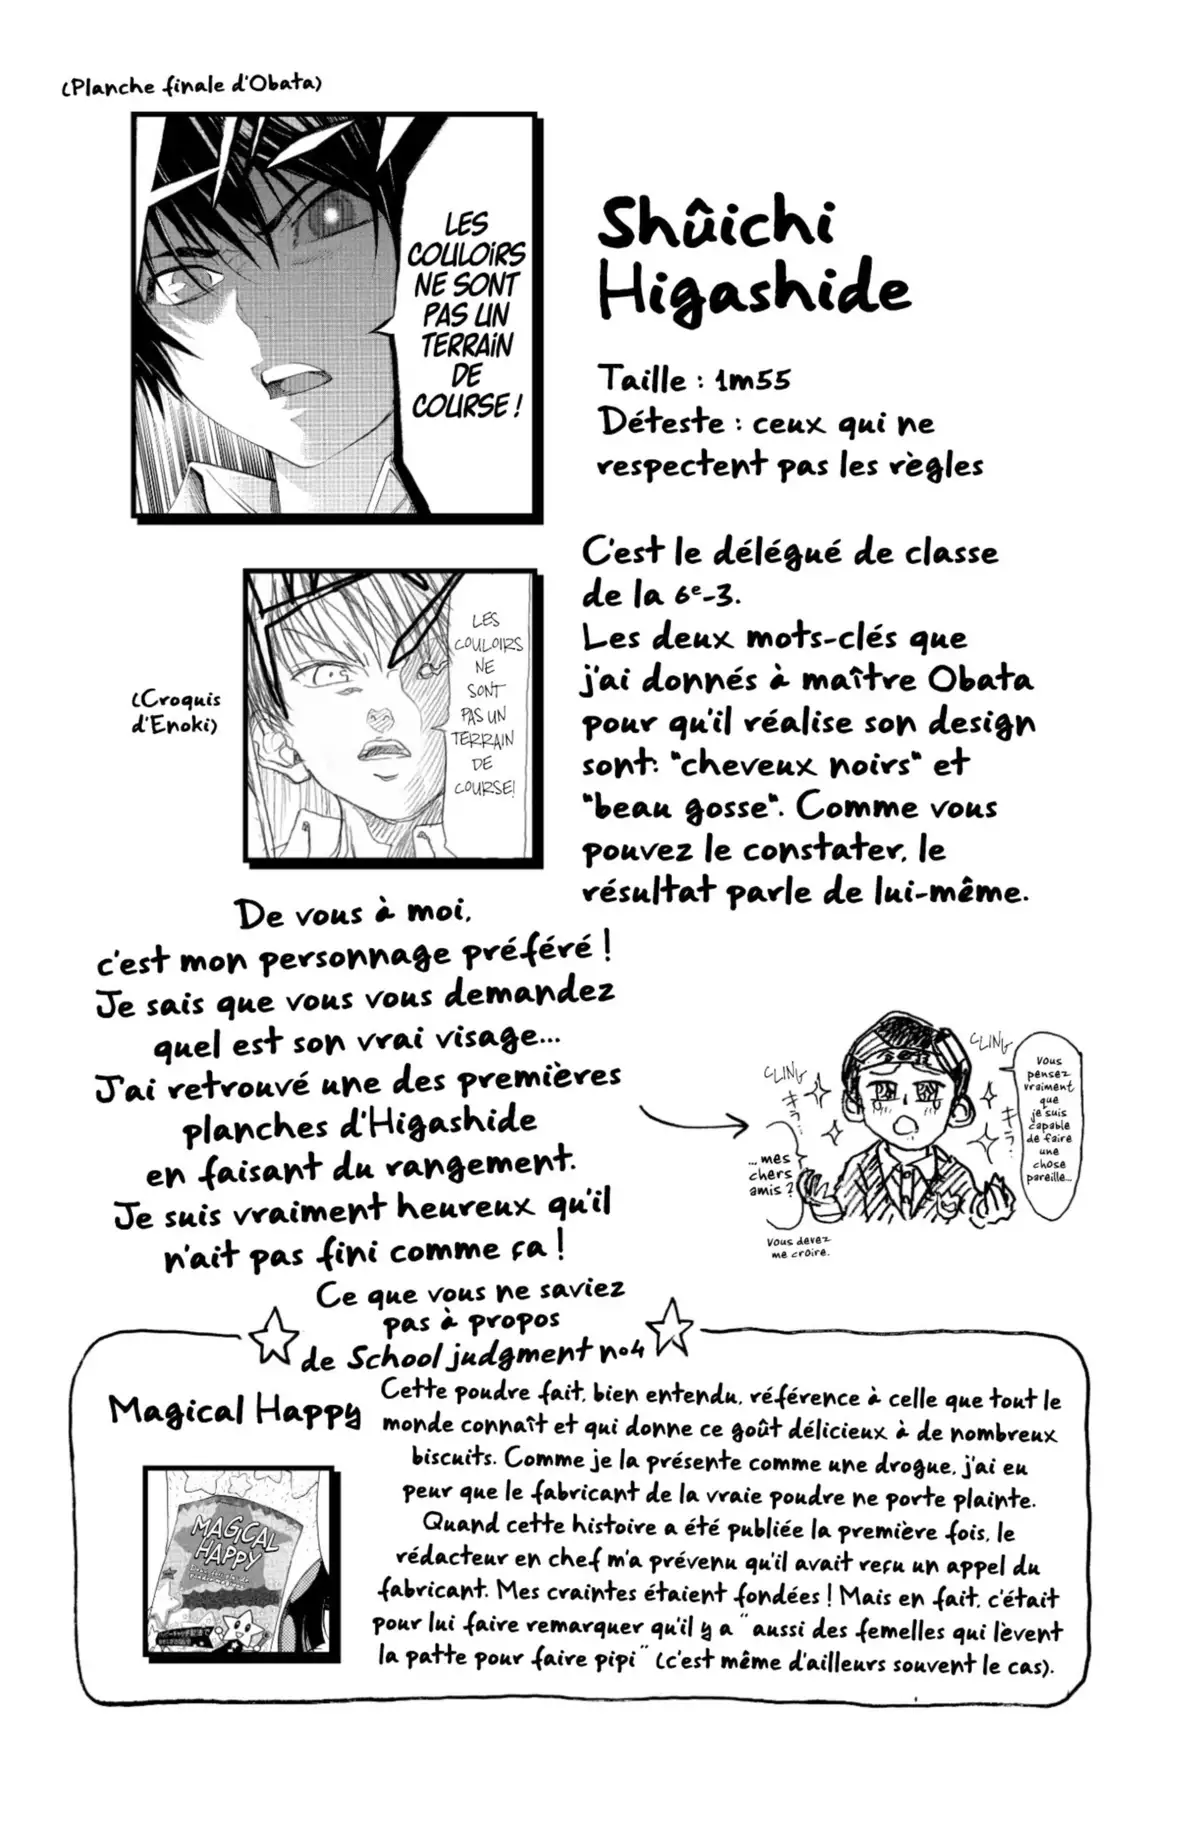 (Planche finale d'Obata)
LES
COULOIRS
NE SONT
PAS UN
TERRAIN
DE
COURSE !
Shûichi
Higashide
Taille : 1m55
Déteste : ceux qui ne
respectent pas les règles
C'est le délégué de classe
de la 6e-3.
Les deux mots-clés que
j'ai donnés à maître Obata
pour qu'il réalise son design
sont: "cheveux noirs" et
"beau gosse". Comme vous
pouvez le constater, le
résultat parle de lui-même.
(Croquis
d'Enoki)
LES
COULOIRS
NE
SONT
PAS UN
TERRAIN
DE
COURSE!
De vous à moi,
c'est mon personnage préféré !
Je sais que vous vous demandez
quel est son vrai visage...
J'ai retrouvé une des premières
planches d'Higashide
en faisant du rangement.
Je suis vraiment heureux qu'il
n'ait pas fini comme ça !
CLING
キラ
Vous
pensez
vraiment
que
je suis
capable
de faire
une
chose
pareille...
CLING
キラ
... mes
chers
amis ?
Vous devez
me croire.
Ce que vous ne saviez
pas à propos
de School judgment n°4
Magical Happy
MAGICAL
HAPPY
Cette poudre fait, bien entendu, référence à celle que tout le
monde connaît et qui donne ce goût délicieux à de nombreux
biscuits. Comme je la présente comme une drogue, j'ai eu
peur que le fabricant de la vraie poudre ne porte plainte.
Quand cette histoire a été publiée la première fois, le
rédacteur en chef m'a prévenu qu'il avait reçu un appel du
fabricant. Mes craintes étaient fondées ! Mais en fait, c'était
pour lui faire remarquer qu'il y a "aussi des femelles qui lèvent
la patte pour faire pipi" (c'est même d'ailleurs souvent le cas).